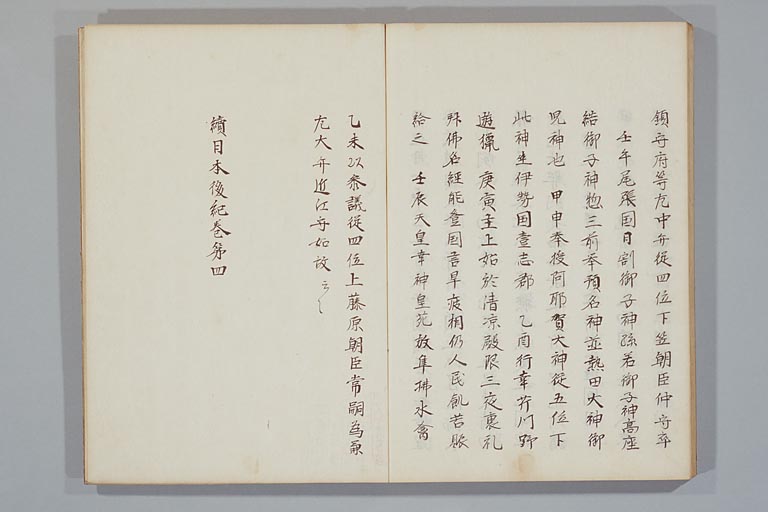 領守府等左中弁從四位下笠朝臣仲守卒
壬午尾張国日割御子神孫若御子神高座
結御子神惣三前奉預名神並熱田大神御
児神也 甲申奉授阿耶賀大神從五位下
此神坐伊勢国壹志郡 乙酉行幸芹川野
遊猟 庚寅主上始於清凉殿限三夜裏礼
拜佛名經能登国言旱疲相仍人民飢苦賑
給之 壬辰天皇幸神皇苑放隼拂水禽
乙未以参議從四位上藤原朝臣常嗣為兼
左大弁近江守如故云〻
續日本後紀巻第四